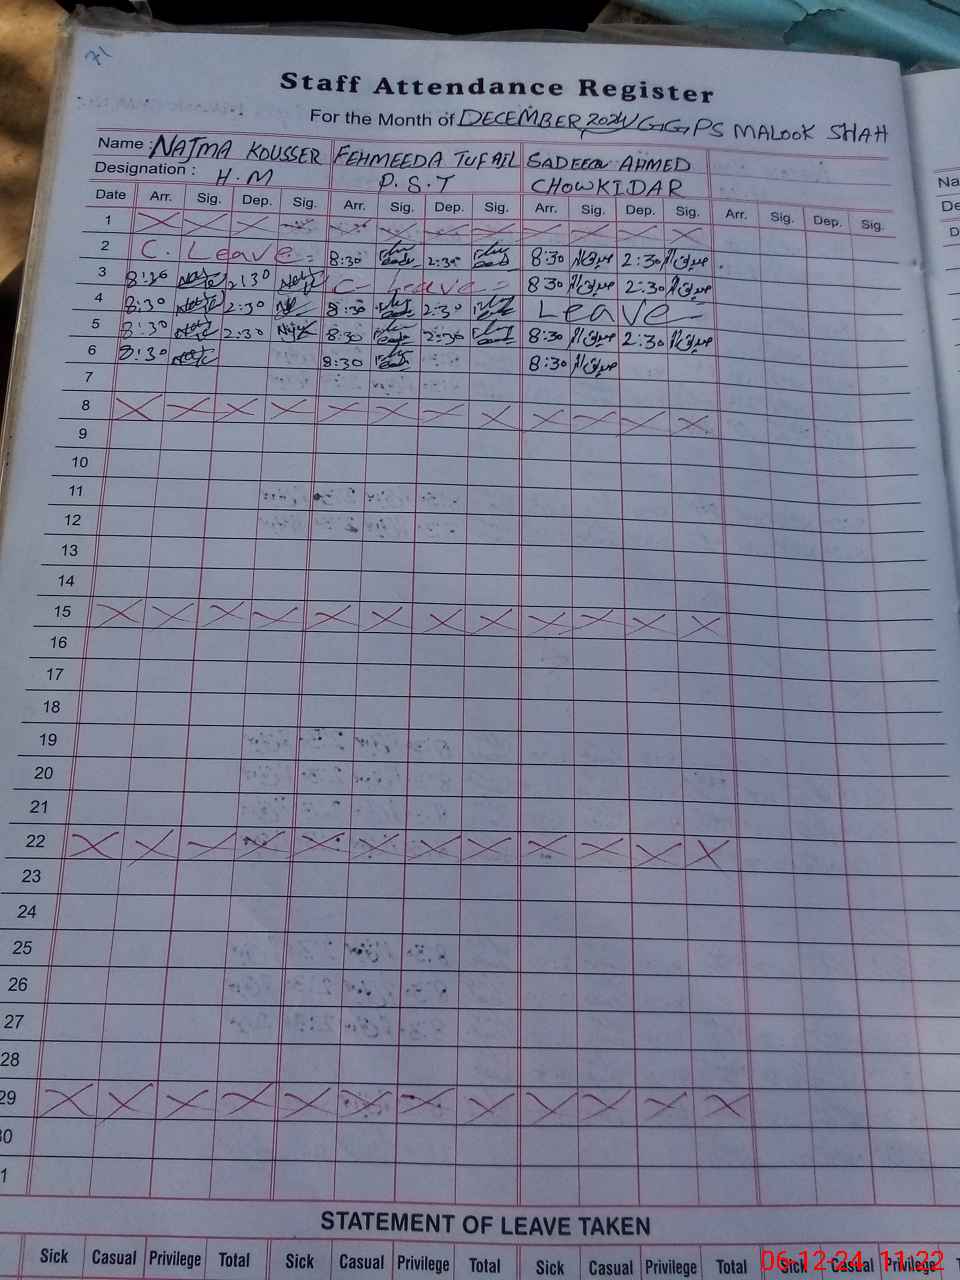 71
Staff Attendance Register
For the Month of DECEMBER 2024 GGPS MALOOK SHAH
Name : NAJMA KOUSSER FEHMEEDA TUFAIL SADEEQ AHMED
Designation : H.M P.S.T CHOWKIDAR
Date Arr. Sig. Dep. Sig. Arr. Sig. Dep. Sig. Arr. Sig. Dep. Sig. Arr. Sig. Dep. Sig.
1
2 C. Leave 8:30 2:30 8:30 2:30
3 8:30 2:30 C- Leave 8:30 2:30
4 8:30 2:30 8:30 2:30 Leave
5 8:30 2:30 8:30 2:30 8:30 2:30
6 8:30 8:30 8:30
7
8
9
10
11
12
13
14
15
16
17
18
19
20
21
22
23
24
25
26
27
28
29
30
1
STATEMENT OF LEAVE TAKEN
Sick Casual Privilege Total Sick Casual Privilege Total Sick Casual Privilege Total Sick Casual Privilege
06-12-24, 11:22